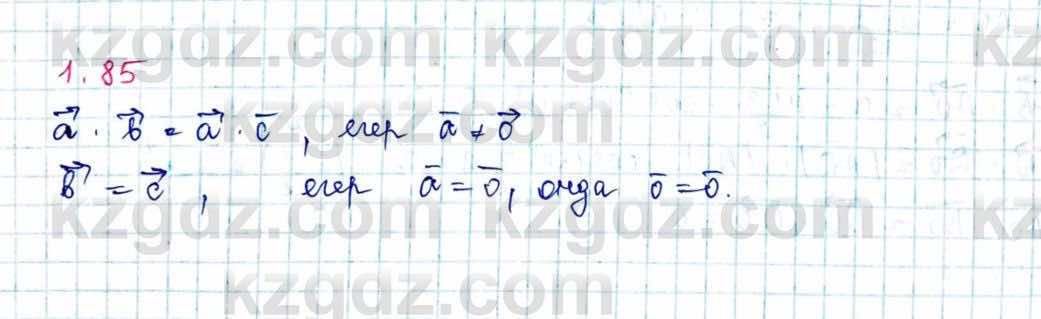 kzgdz.com kzgdz.com kz
1.85
a⃗ · b⃗ = a⃗ · c̄ , егер ā ≠ o⃗
kzgdz.com
b⃗ = c⃗ , егер ā = ō, онда ō = ō.
kzgdz.com kzgdz.com kz
kzgdz.com